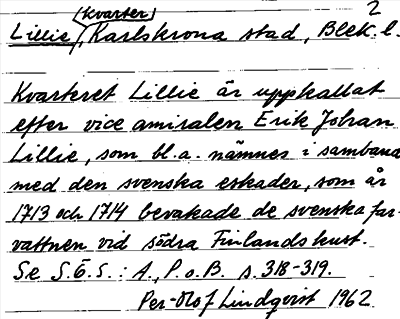 2
(kvarter)
Lillie, Karlskrona stad, Blek. l.
Kvarteret Lillie är uppkallat
efter vice amiralen Erik Johan
Lillie, som bl.a. nämnes i samband
med den svenska eskader, som år
1713 och 1714 bevakade de svenska far-
vattnen vid södra Finlands kust.
Se S.Ö.S.: A, P. o. B. s. 318-319.
Per-Olof Lindqvist 1962.